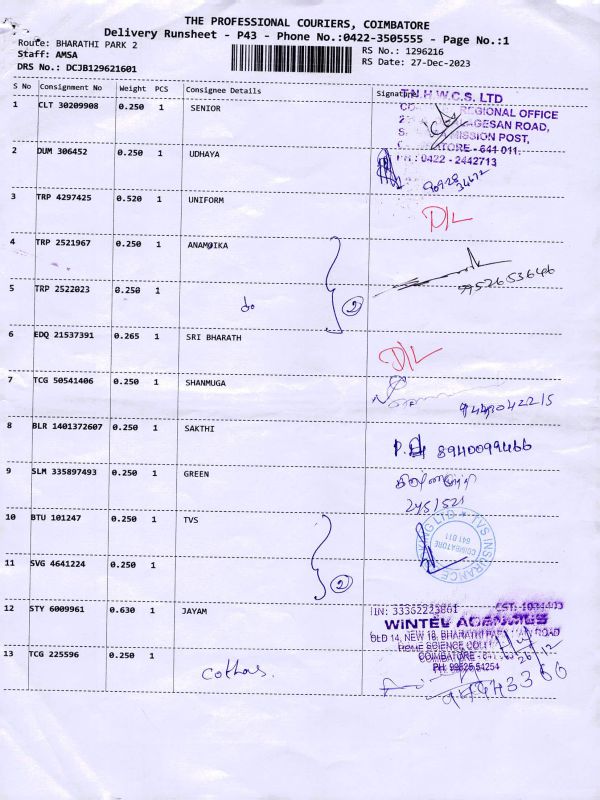 THE PROFESSIONAL COURIERS, COIMBATORE
Delivery Runsheet - P43 - Phone No.:0422-3505555 - Page No.:1
Route: BHARATHI PARK 2 RS No.: 1296216
Staff: AMSA RS Date: 27-Dec-2023
DRS No.: DCJB129621601
S No Consignment No Weight PCS Consignee Details Signature
1 CLT 30209908 0.250 1 SENIOR
T.N.H.W.C.S. LTD
REGIONAL OFFICE
ROAD,
MISSION POST,
641 011.
PH : 0422 - 2442713
2 DUM 306452 0.250 1 UDHAYA
3 TRP 4297425 0.520 1 UNIFORM D/L
4 TRP 2521967 0.250 1 ANAMOIKA
2 9952653646
5 TRP 2522023 0.250 1 do
6 EDQ 21537391 0.265 1 SRI BHARATH D/L
7 TCG 50541406 0.250 1 SHANMUGA
8 BLR 1401372607 0.250 1 SAKTHI 8940099466
9 SLM 335897493 0.250 1 GREEN
245/521
10 BTU 101247 0.250 1 TVS
KING LTD * TVS INSURANCE
COIMBATORE
641 011
2
11 SVG 4641224 0.250 1
12 STY 6009961 0.630 1 JAYAM
WINTEL AGENCIES
OLD 14, NEW 18, BHARATHI PARK MAIN ROAD
HOME SCIENCE
COIMBATORE
13 TCG 225596 0.250 1